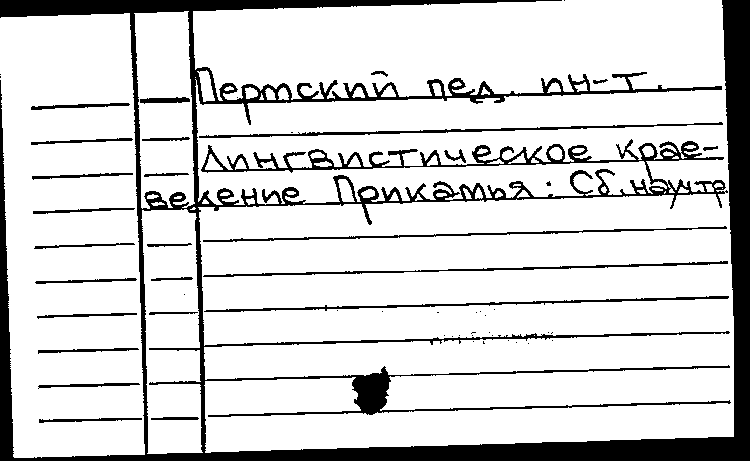 Пермский пед. ин-т.
Лингвистическое крае-
ведение Прикамья: Сб. науч.тр